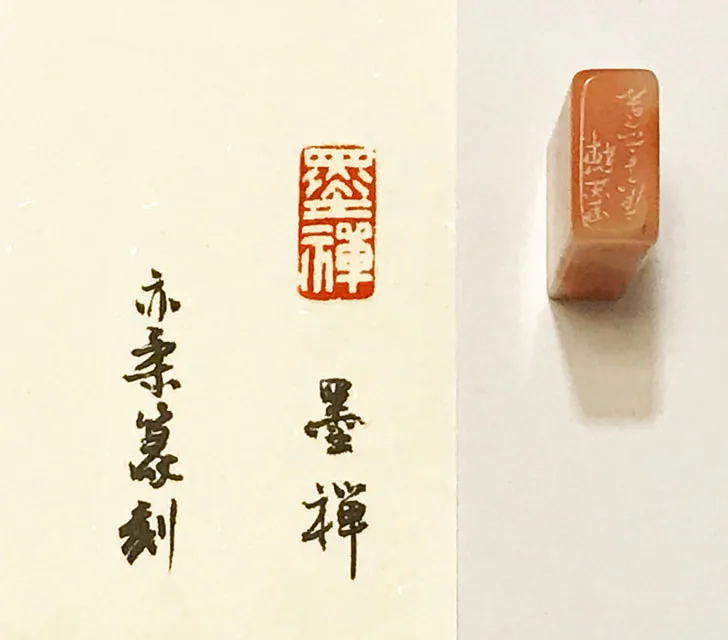 墨禪
墨禪
亦柔篆刻